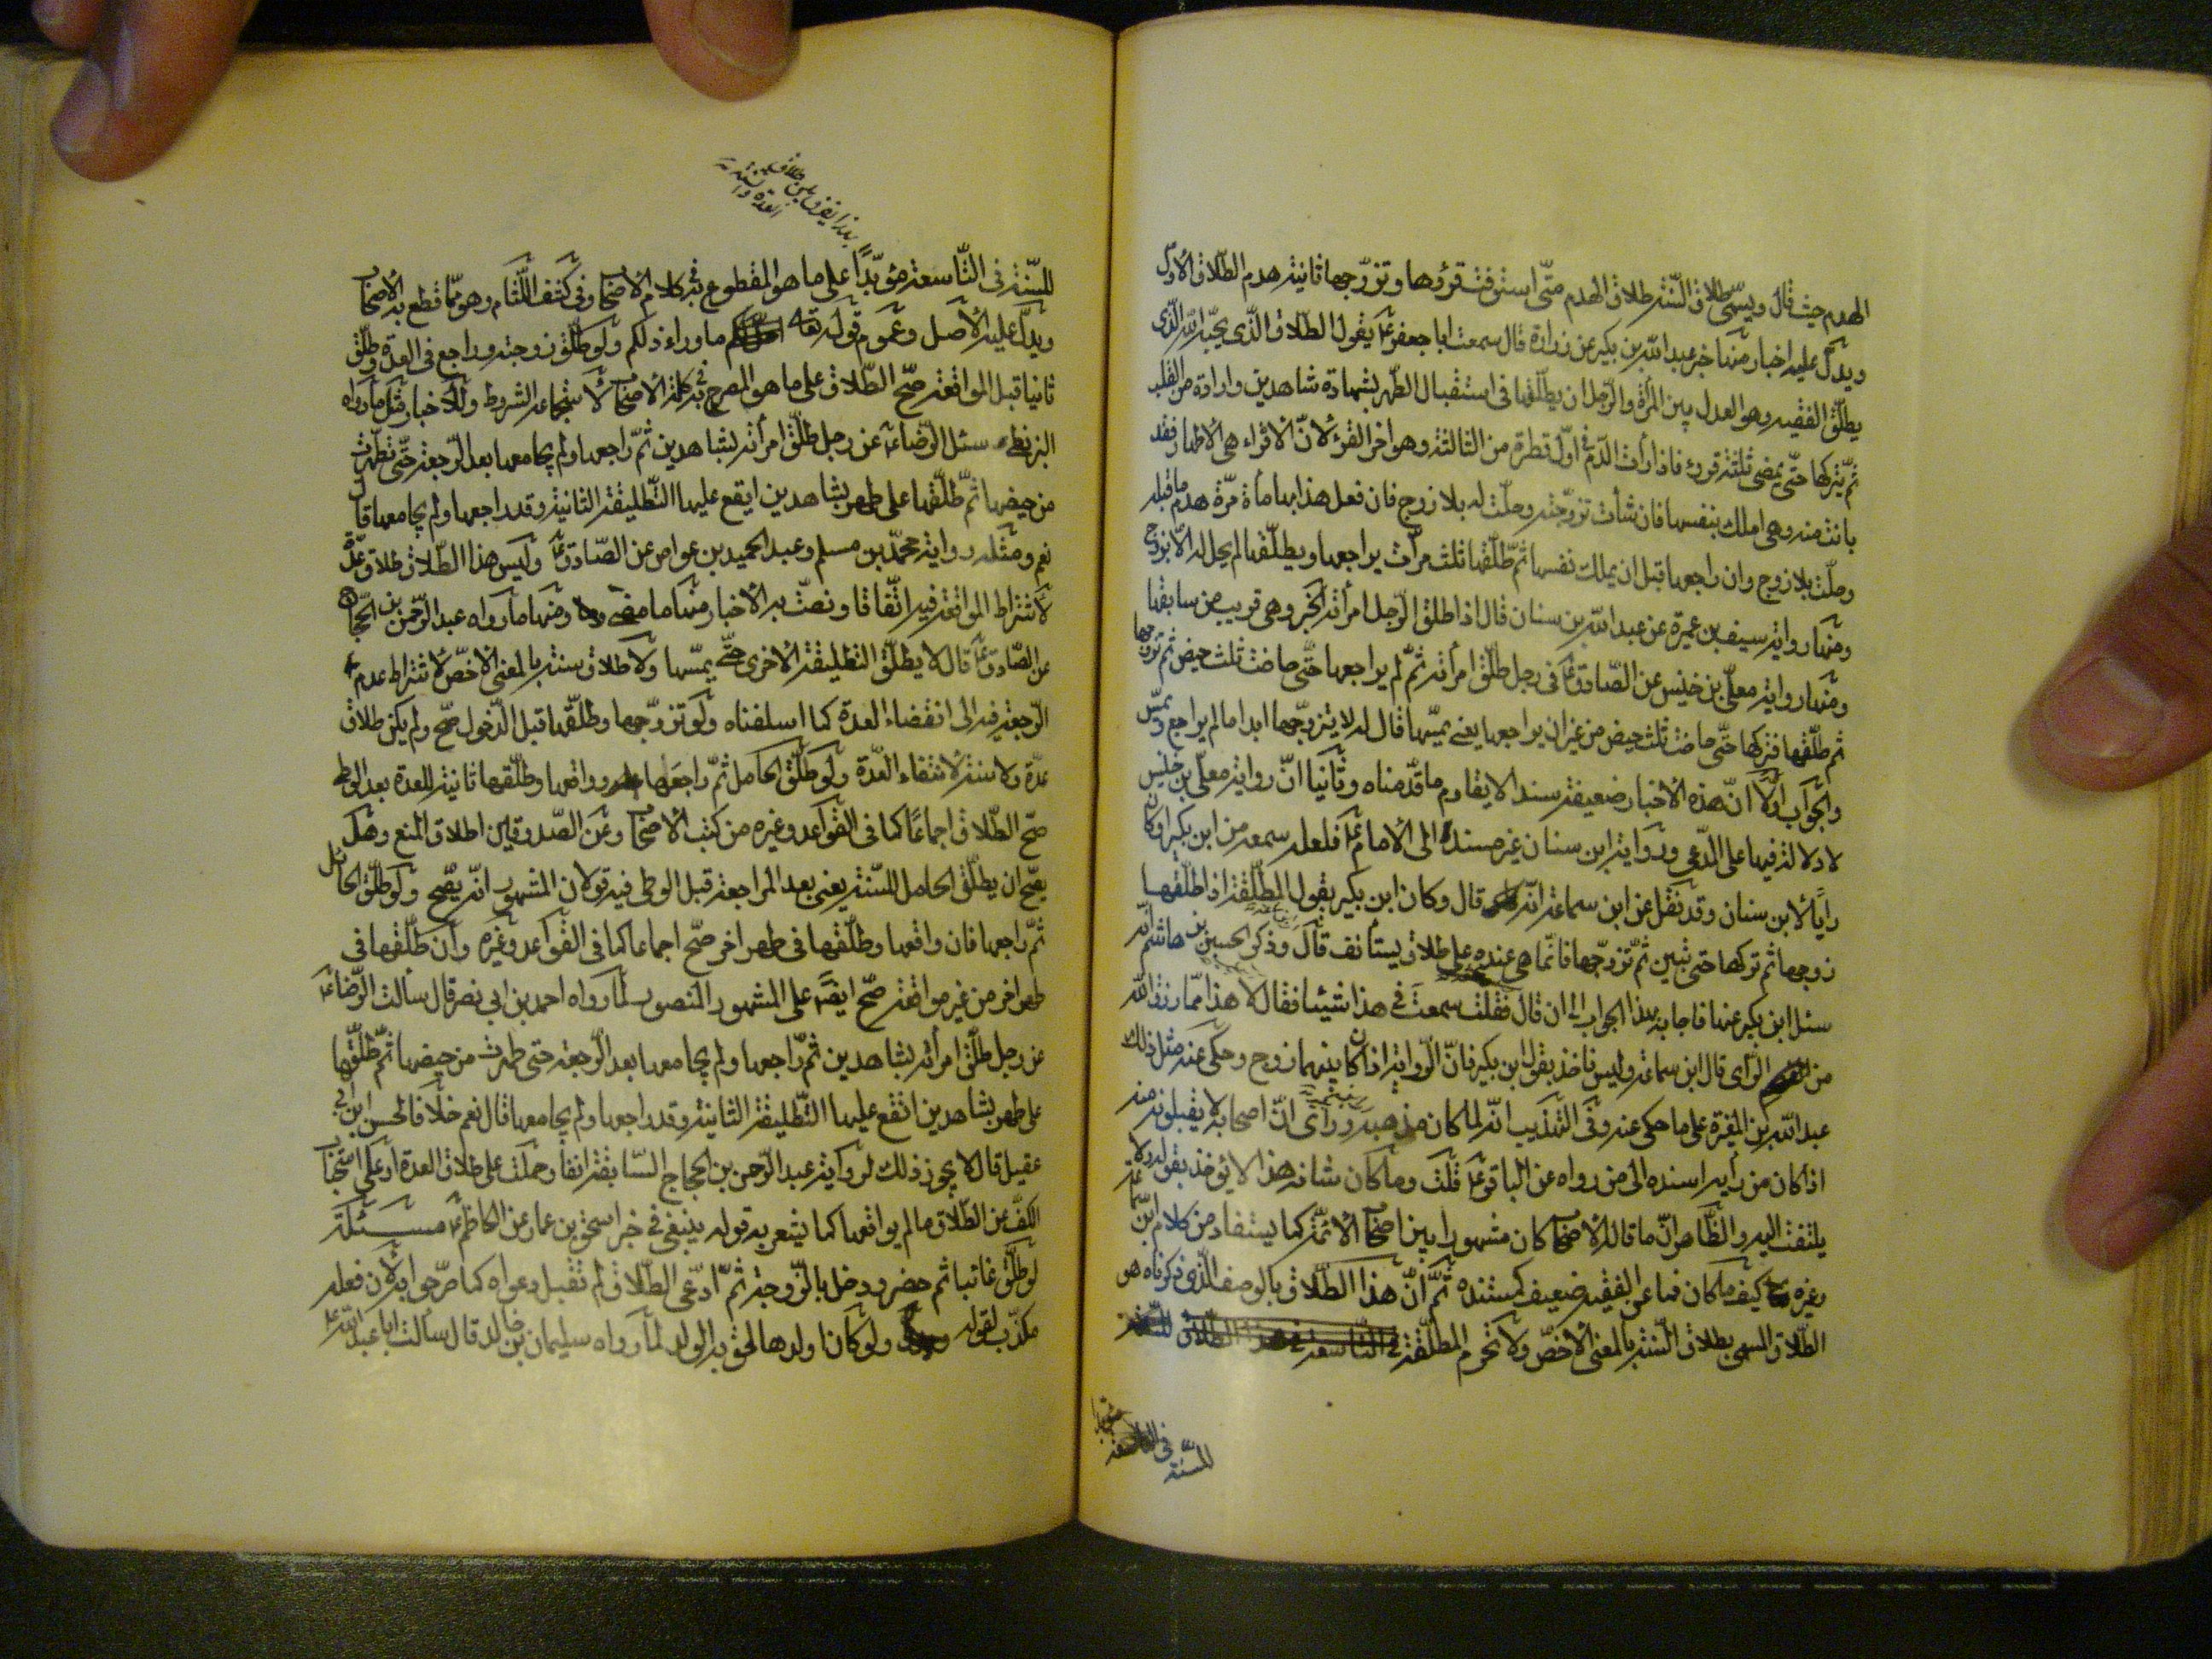 الهدم حيث قال ويسمّى طلاق السّنّة طلاق الهدم متى استوفت قرؤها وتزوّجها ثانية هدم الطّلاق الأوّل
ويدلّ عليه اخبار منها خبر عبد اللّه بن بكير عن زرارة قال سمعت ابا جعفر ع يقول الطلاق الّذى يحبّه اللّه والّذى
يطلّق الفقيه وهو العدل بين المرأة والرّجل ان يطلّقها فى استقبال الطّهر بشهادة شاهدين وارادة من القلب
ثمّ يتركها حتّى يمضى ثلثة قروء فاذا رأت الدّم فى اوّل قطرة من الثالثة وهو اخر القرء لانّ الاقراء هى الاطهار فقد
بانت منه وهى املك بنفسها فان شأت تزوّجته وحلّت له بلا زوج فان فعل هذا بها مأة مرّة هدم ما قبله
وحلّت بلا زوج وان راجعها قبل ان يملك نفسها ثمّ طلّقها ثلث مرّات يراجعها ويطلّقها لم يحل له الّا بزوج
ومنها رواية سيف بن عميرة عن عبد اللّه بن سنان قال اذا طلق الرّجل امرأته الخبر وهى قريب من سابقها
ومنها رواية معلّى بن خنيس عن الصّادق ع فى رجل طلّق امرأته ثمّ لم يراجعها حتّى حاضت ثلث حيض ثم تزوّجها
ثم طلّقها فتركها حتّى حاضت ثلث حيض من غير ان يراجعها يعنى يمسّها قال له لا يتزوّجها ابدا ما لم يراجع ويمسّ
والجواب اوّلا انّ هذه الأخبار ضعيفة سندا لا يقاوم ما قدّمناه وثانيا انّ رواية معلّى بن خنيس
لا دلالة فيها على المدّعى ورواية ابن سنان غير مسندة الى الأمام ع فلعله سمعه من ابن بكير او كان
رأيا لابن سنان وقد نقل عن ابن سماعة انّه قال وكان ابن بكير يقول المطلّقة اذا طلّقها
زوجها ثم تركها حتى تبين ثمّ تزوّجها فانّما هى عنده على طلاق يستأنف قال وذكر الحسين بن هاشم انّه
سئل ابن بكير عنها فاجابه بهذا الجواب الى ان قال فقلت سمعت فى هذا شيئا فقال لا هذا ممّا رزق اللّه
من الرّاى قال ابن سماعة وليس ناخذ بقول ابن بكير فانّ الرّواية اذا كان بينهما زوج وحكى عنه مثل ذلك
عبد اللّه بن المغيرة على ما حكى عنه وفى التهذيب انّه لما كان مذهبه ورأى انّ اصحابه لا يقبلونه منه
اذ كان من رأيه اسنده الى من رواه عن الباقر ع قلت وما كان شانه هذا لا يؤخذ بقوله ولا
يلتفت اليه والظّاهر انّ ما قاله الأصحاب كان مشهورا بين اصحاب الأئمّة كما يستفاد من كلام ابن سماعة
وغيره كيف ما كان فما عن الفقيه ضعيف كمستنده ثمّ انّ هذا الطّلاق بالوصف الّذى ذكرناه هو
الطّلاق المسمى بطلاق السّنّة بالمعنى الأخصّ ولا تحرم المطلّقة
للسّنّة فى
للسّنّة فى التّاسعة مؤبّدا على ما هو المقطوع فى كلام الأصحاب وفى كشف اللّثام وهو ممّا قطع به الأصحاب
ويدلّ عليه الأصل وعموم قوله تعالى احلّ لكم ما وراء ذلكم ولو طلّق زوجته وراجع فى العدّة وطلّق
ثانيا قبل المواقعة صحّ الطّلاق على ما هو المصرح به فى كلمة الأصحاب لاستجماعه الشروط وللأخبار مثل ما رواه
البزنطى سئل الرّضا ع عن رجل طلّق امرأته بشاهدين ثمّ راجعها ولم يجامعها بعد الرّجعة حتّى تطهّرت
من حيضها ثمّ طلّقها على طهر بشاهدين ايقع عليها التّطليقة الثانية وقد راجعها ولم يجامعها قال
نعم ومثله رواية محمّد بن مسلم وعبد الحميد بن عواض عن الصّادق ع وليس هذا الطّلاق طلاق عدّة
لاشتراط المواقعة فيه اتّفاقا ونصّت به الأخبار منها ما مضى ومنها ما رواه عبد الرّحمن بن الحجّاج
عن الصّادق ع قال لا يطلّق التطليقة الأخرى حتّى يمسّها ولا طلاق سنّة بالمعنى الأخصّ لاشتراط عدم
الرّجعة فيه الى انقضاء العدة كما اسلفناه ولو تزوّجها وطلّقها قبل الدّخول صحّ ولم يكن طلاق
عدّة ولا سنة لانتفاء العدّة ولو طلّق الحامل ثمّ راجعها وواقعها وطلّقها ثانية للعدة بعد الوطى
صحّ الطّلاق اجماعًا كما فى القواعد وغيره من كتب الأصحاب وعن الصّدوقين اطلاق المنع وهل
يصّح ان يطلّق الحامل للسّنّة يعنى بعد المراجعة قبل الوطى فيه قولان المشهور انّه يصّح ولو طلّق الحائل
ثمّ راجعها فان واقعها وطلّقها فى طهر اخر صّح اجماعا كما فى القواعد وغيره وان طلّقها فى
طهر اخر من غير مواقعة صّح ايضا على المشهور المنصور لما رواه احمد بن ابى نصر قال سألت الرّضا ع
عن رجل طلّق امرأته بشاهدين ثم راجعها ولم يجامعها بعد الرّجعة حتى طهرت من حيضها ثمّ طلّقها
على طهر بشاهدين اتقع عليها التّطليقة الثانية وقد راجعها ولم يجامعها قال نعم خلافا لحسن ابن ابى
عقيل قال لا يجوز ذلك لرواية عبد الرّحمن بن الحجاج السّابقة انفا وحملت على طلاق العدة او على استحباب
الكفّ عن الطّلاق ما لم يواقعها كما يشعر به قوله ينبغى فى خبر اسحق بن عمار عن الكاظم ع مسئلة
لو طلّق غائبا ثم حضر ودخل بالزّوجة ثمّ ادّعى الطّلاق لم تقبل دعواه كما صرّحوا به لأن فعله
مكذّب لقوله ولو كان اولدها لحق به الولد لما رواه سليمان بن خالد قال سألت ابا عبد اللّه ع